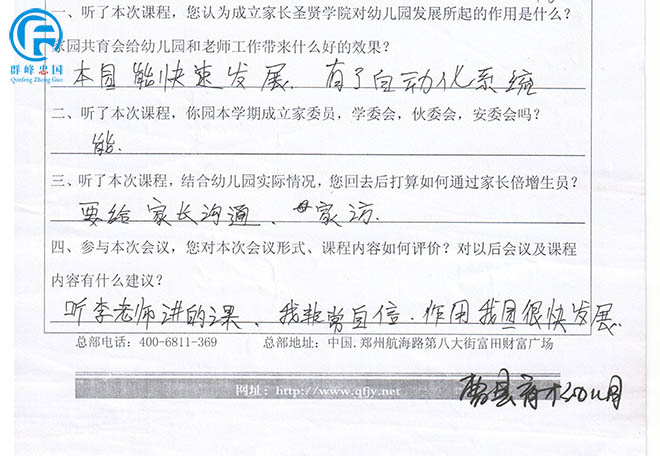 群峰忠国
Qunfeng Zhong Guo
一、听了本次课程，您认为成立家长圣贤学院对幼儿园发展所起的作用是什么？
家园共育会给幼儿园和老师工作带来什么好的效果？
本园能快速发展、有了自动化系统
二、听了本次课程，你园本学期成立家委员，学委会，伙委会，安委会吗？
能.
三、听了本次课程，结合幼儿园实际情况，您回去后打算如何通过家长倍增生员？
要给家长沟通、 家访.
四、参与本次会议，您对本次会议形式、课程内容如何评价？对以后会议及课程
内容有什么建议？
听李老师讲的课、我非常自信.作用我园很快发展.
总部电话：400-6811-369 总部地址：中国.郑州航海路第八大街富田财富广场
网址：http://www.qfjy.net
曹县育才幼儿园